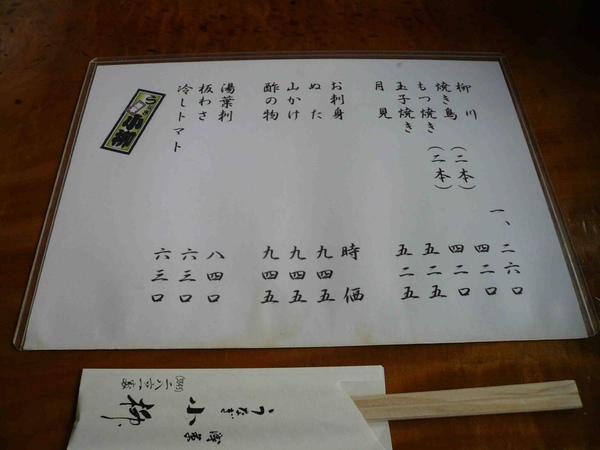 柳川 一、二六〇
焼き鳥（二本） 四二〇
もつ焼き（二本） 四二〇
玉子焼き 五二五
月見 五二五
お刺身 時価
ぬた 九四五
山かけ 九四五
酢の物 九四五
湯葉刺 八四〇
板わさ 六三〇
冷しトマト 六三〇
浅草
うなぎ
小柳
二八六一番